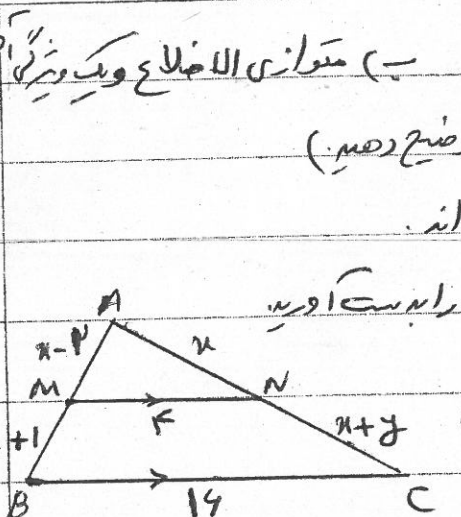 ب) متوازی الاضلاع و یک ویژگی
ضیح دهید.)
اند.
را بدست آورید
A
x-۲ x
M N
+1 ۴ x+y
B ۱۶ C